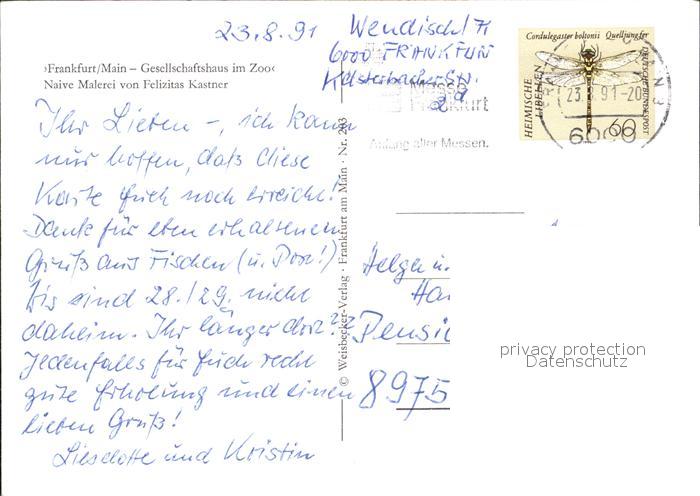 23.8.91
Wendisch/71
6000 FRANKFURT
Kelsterbacher Str.
29
›Frankfurt/Main – Gesellschaftshaus im Zoo‹
Naive Malerei von Felizitas Kastner
Ihr Lieben –, ich kann
nur hoffen, daß diese
Karte Euch noch erreicht!
Dank für eben erhaltenen
Gruß aus Fischen (u. Dora!)
Bis sind 28./29. nicht
daheim. Ihr länger dort??
Jedenfalls für Euch recht
gute Erholung und einen
lieben Gruß!
Lieselotte und Kristin
© Weisbecker-Verlag · Frankfurt am Main · Nr. 203
Cordulegaster boltonii Quelljungfer
HEIMISCHE
LIBELLEN
DEUTSCHE BUNDESPOST
60
23.8.91-20
6000
Messe
Frankfurt
Anfang aller Messen.
Helga u.
Ha
Pensi
8975
privacy protection
Datenschutz